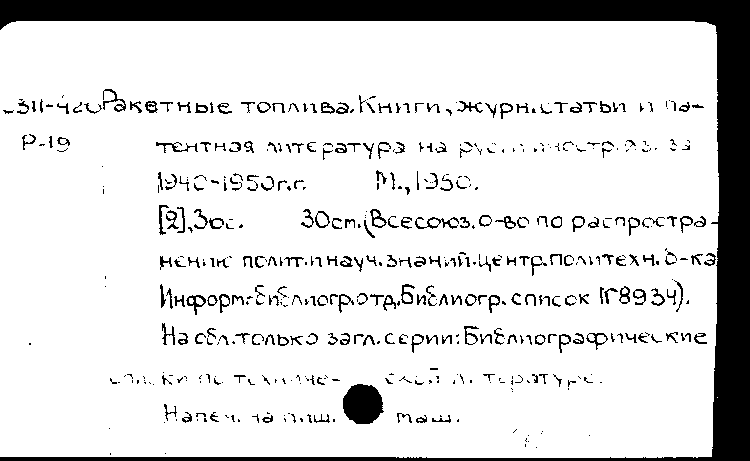 Ракетные топлива. Книги, журн. статьи и па-
Р-19 тентная литература на русск. и иностр. яз. за
1940-1950 г.г. М., 1950.
[2], 30с. 30см. (Всесоюз. о-во по распростра-
нению полит. и науч. знаний. Центр. политехн. б-ка
Информ.-библиогр. отд. Библиогр. список №8934).
На обл. только загл. серии: Библиографические
списки по техниче- ской литературе.
Напеч. на пиш. маш.